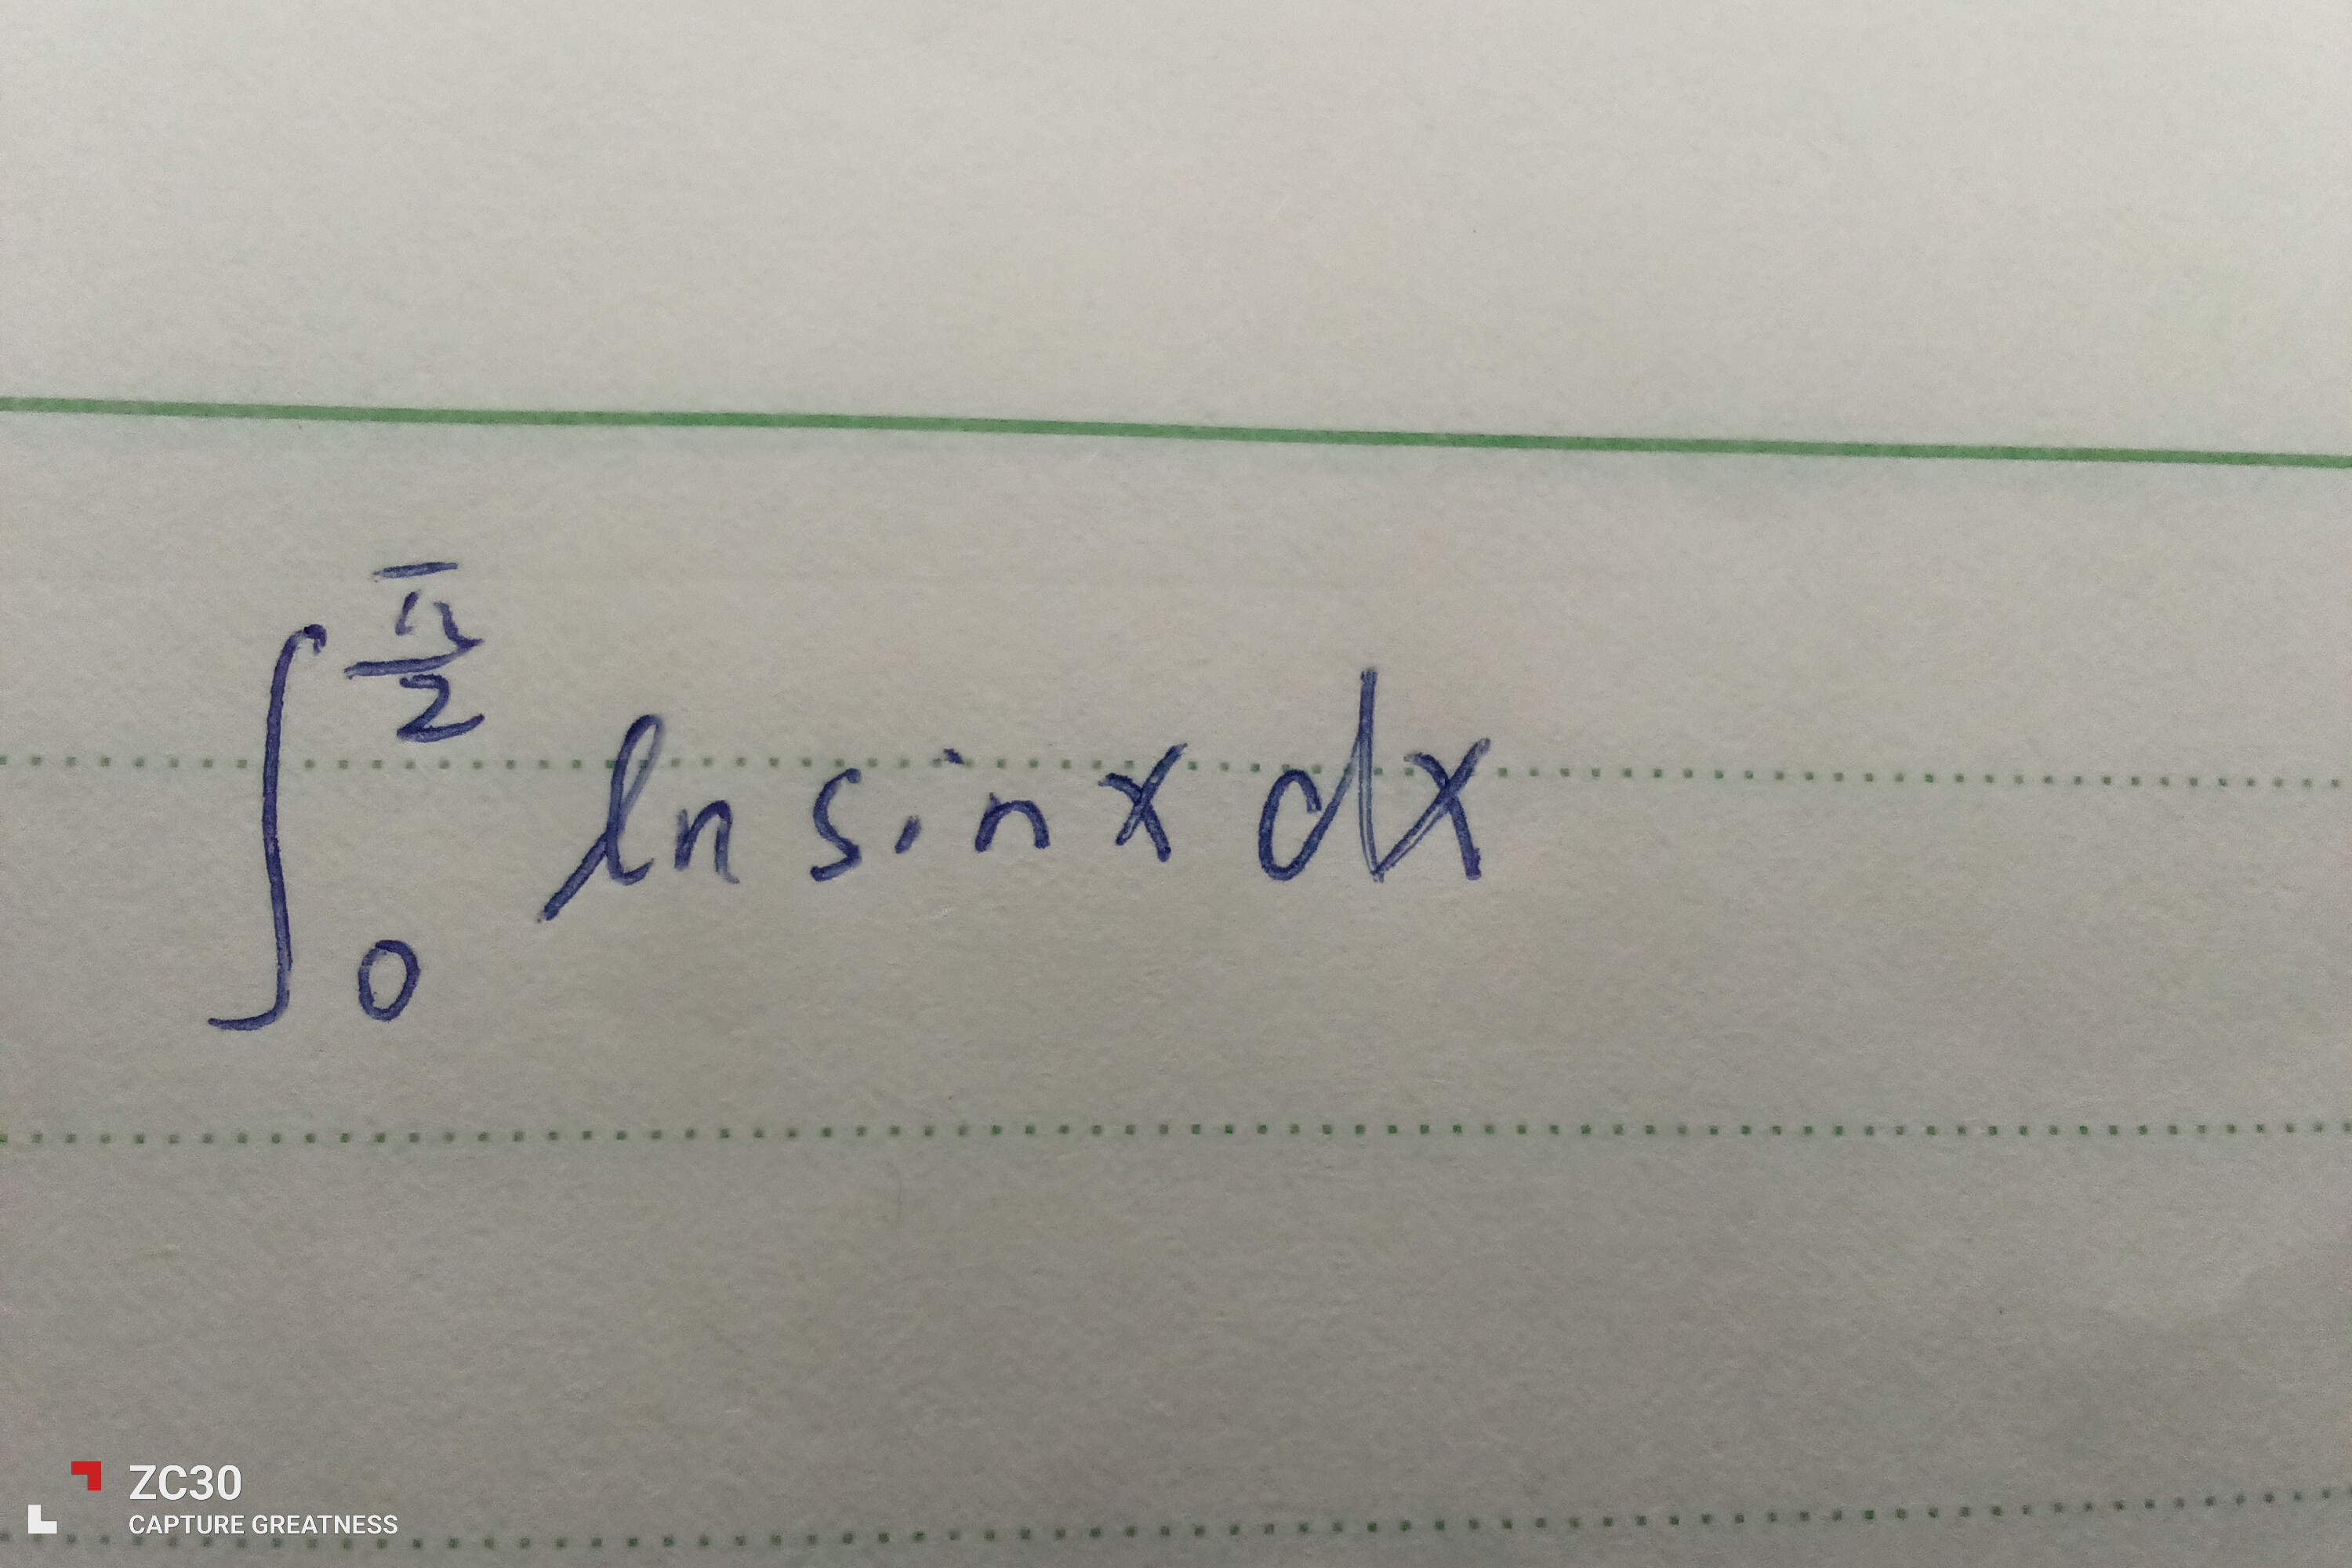 ∫₀^{π/2} ln sin x dx
ZC30
CAPTURE GREATNESS